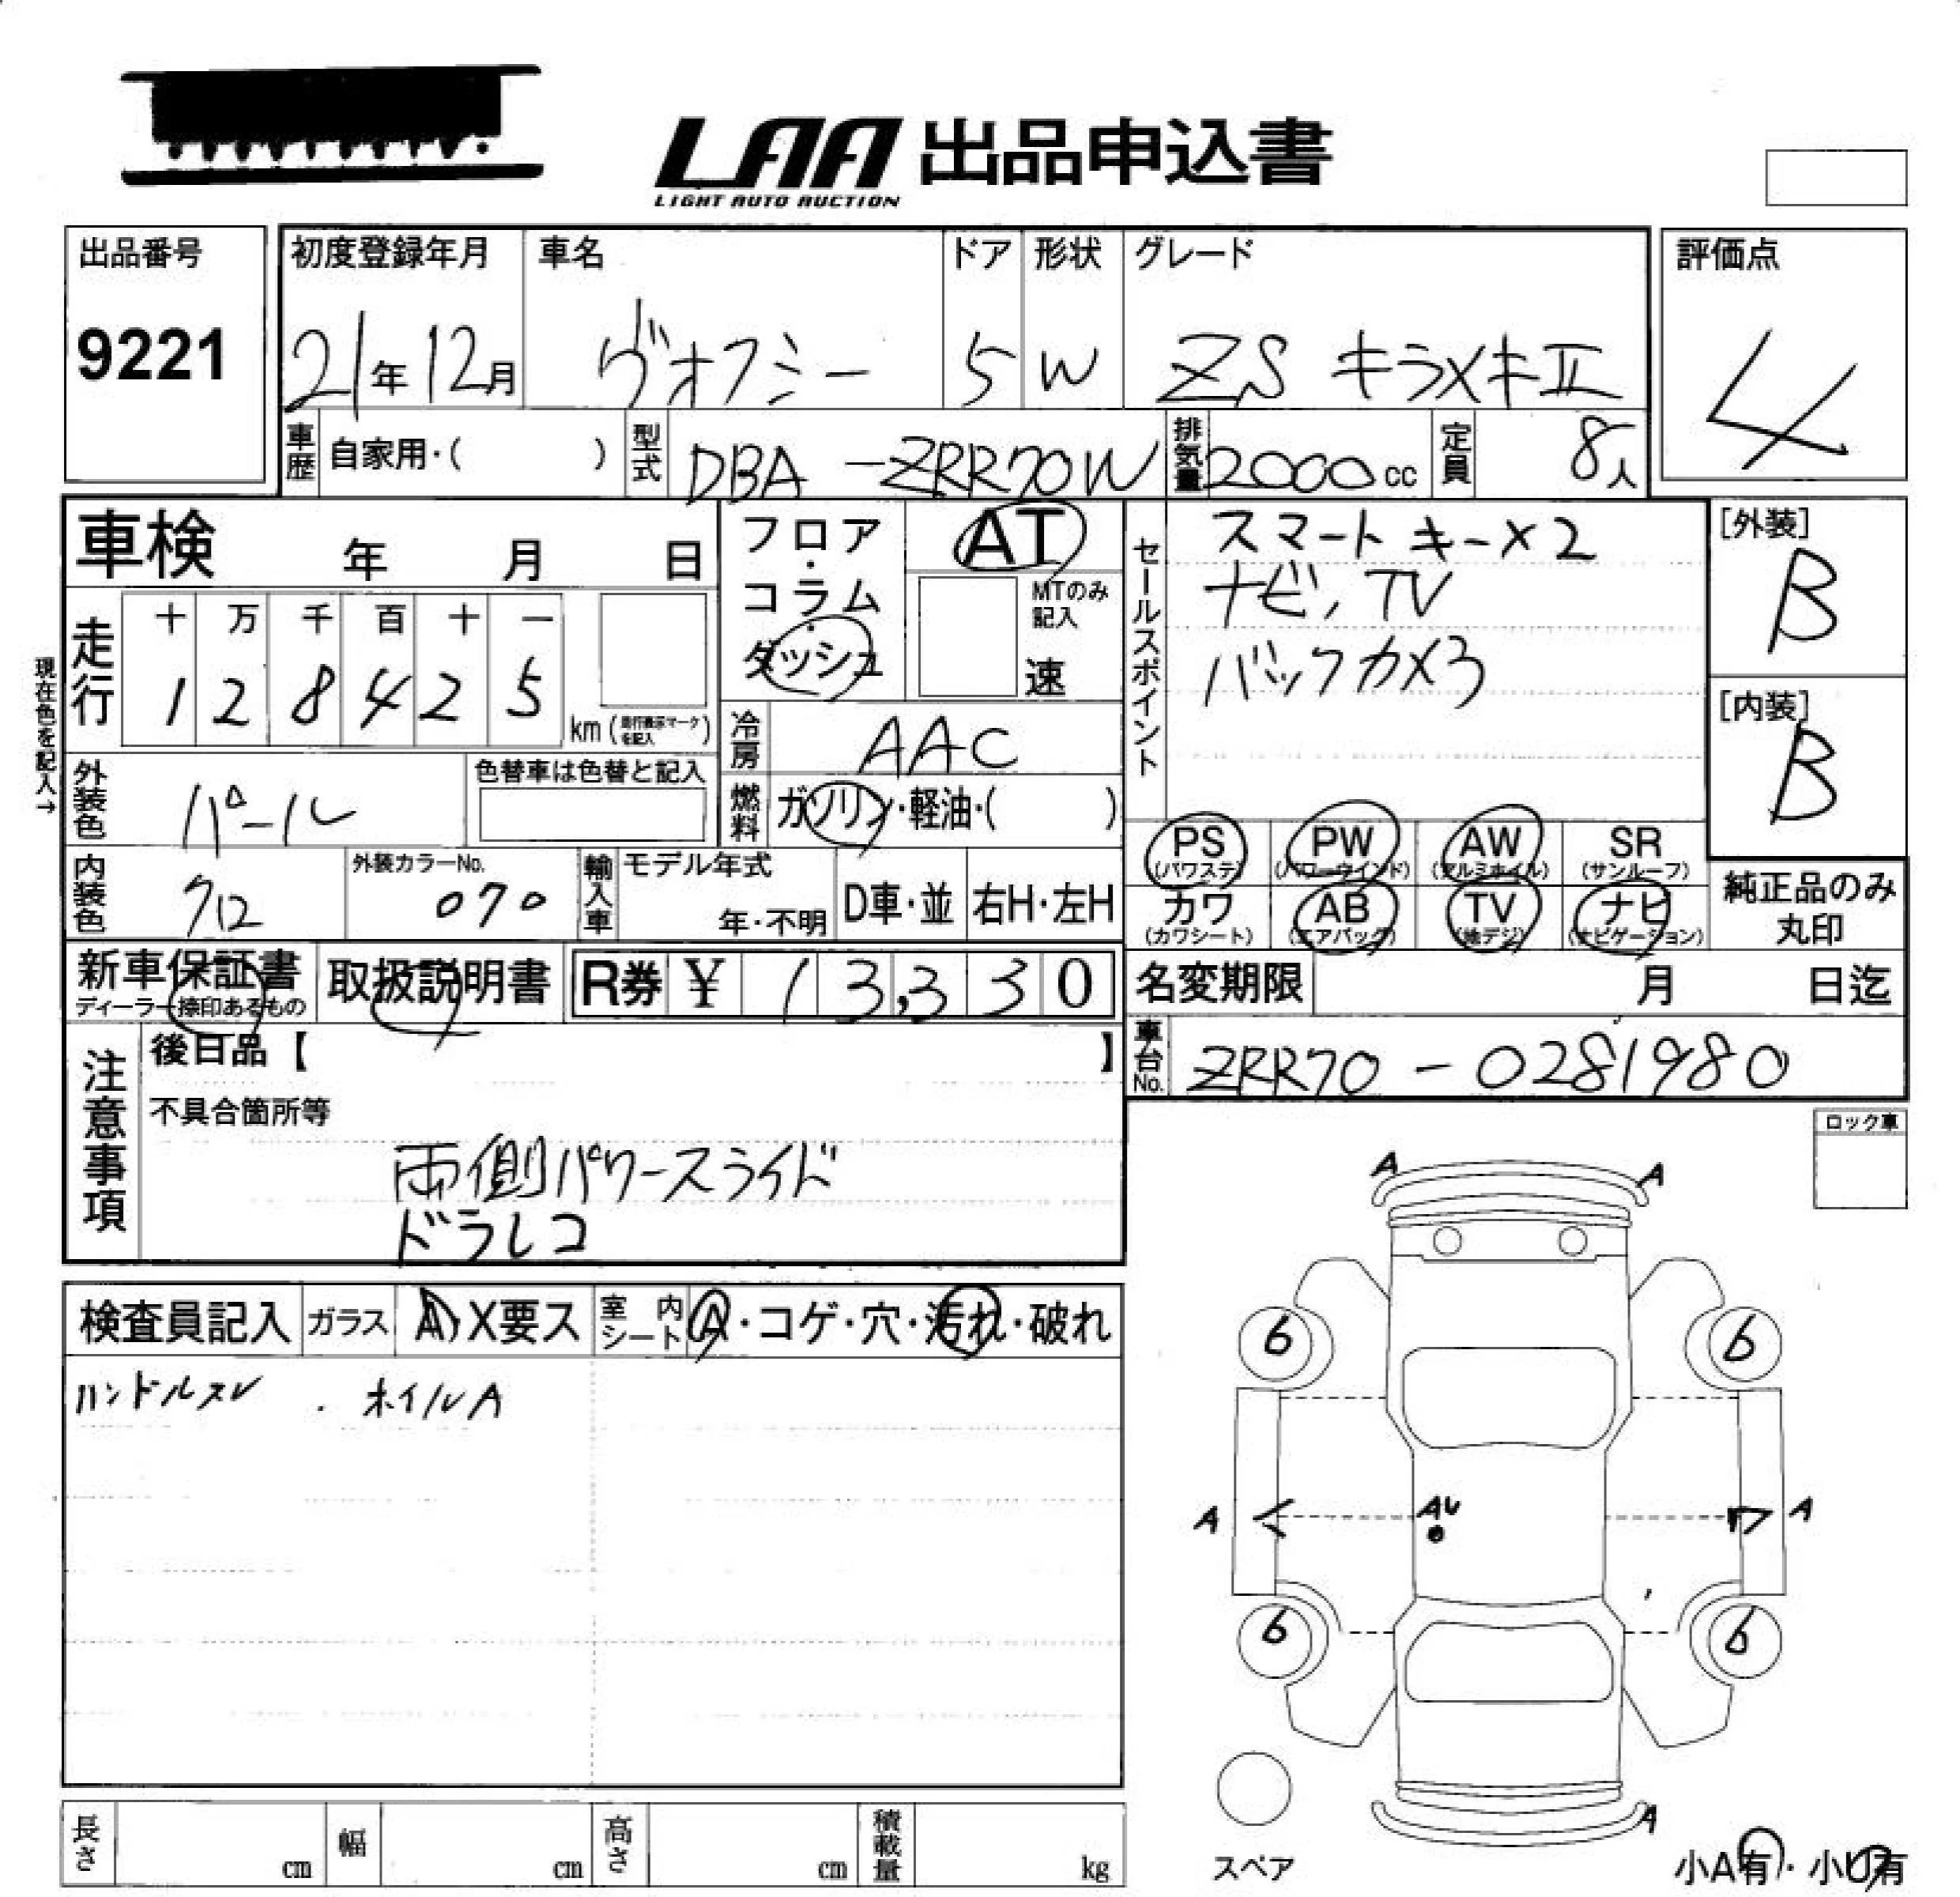 LAA 出品申込書
LIGHT AUTO AUCTION
出品番号
9221
初度登録年月
21年12月
車名
ヴォクシー
ドア
5
形状
W
グレード
ZS キラメキⅡ
評価点
4
車歴
自家用・( )
型式
DBA-ZRR70W
排気量
2000cc
定員
8人
車検 年 月 日
フロア・コラム・ダッシュ
AT
MTのみ記入
速
セールスポイント
スマートキー×2
ナビ、TV
バックカメラ
[外装]
B
[内装]
B
現在色を記入→
走行
十 万 千 百 十 一
1 2 8 4 2 5
km (走行表示マークを記入)
冷房
AAC
外装色
パール
色替車は色替と記入
燃料
ガソリン・軽油・( )
PS
(パワステ)
PW
(パワーウインド)
AW
(アルミホイル)
SR
(サンルーフ)
カワ
(カワシート)
AB
(エアバッグ)
TV
(地デジ)
ナビ
(ナビゲーション)
純正品のみ
丸印
内装色
外装カラーNo.
070
輸入車
モデル年式
年・不明
D車・並
右H・左H
新車保証書
ディーラー捺印あるもの
取扱説明書
R券 ¥ 13,330
名変期限 月 日迄
車台No.
ZRR70-0281980
注意事項
後日品【 】
不具合箇所等
両側パワースライド
ドラレコ
ロック車
検査員記入
ガラス
A・X要ス
室内シート
A・コゲ・穴・汚れ・破れ
ハンドルスレ ・ホイルA
A A
6 6
A AU A
6 6
A
スペア
小A有・小U有
長さ cm
幅 cm
高さ cm
積載量 kg